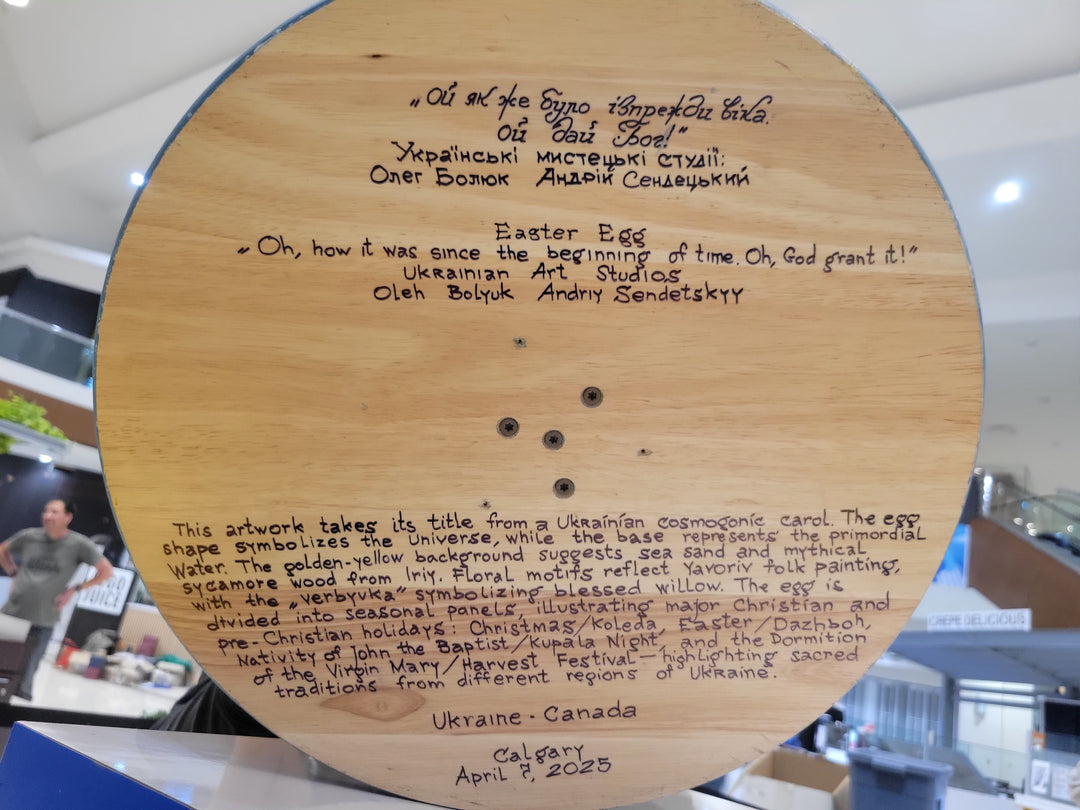 „Ой як же було ізпрежди віка.
Ой дай Бог!"
Українські мистецькі студії:
Олег Болюк Андрій Сендецький
Easter Egg
„Oh, how it was since the beginning of time. Oh, God grant it!"
Ukrainian Art Studios
Oleh Bolyuk Andriy Sendetskyy
This artwork takes its title from a Ukrainian cosmogonic carol. The egg
shape symbolizes the Universe, while the base represents the primordial
Water. The golden-yellow background suggests sea sand and mythical
sycamore wood from Iriy. Floral motifs reflect Yavoriv folk painting,
with the „verbyvka" symbolizing blessed willow. The egg is
divided into seasonal panels, illustrating major Christian and
pre-Christian holidays: Christmas/Koleda, Easter/Dazhboh,
Nativity of John the Baptist/Kupala Night, and the Dormition
of the Virgin Mary/Harvest Festival—highlighting sacred
traditions from different regions of Ukraine.
Ukraine - Canada
Calgary
April 7, 2025
JUICE
CRÊPE DELICIOUS